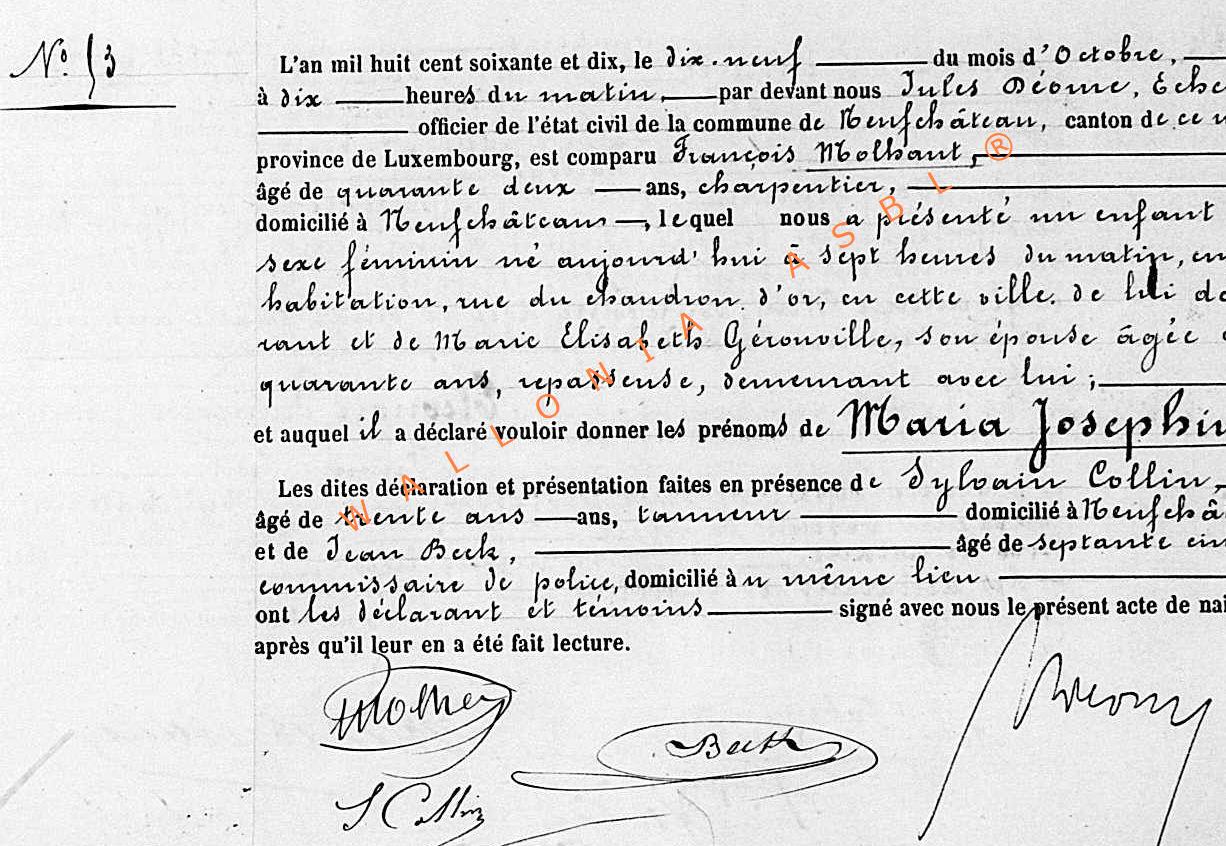 N° 53
L'an mil huit cent soixante et dix, le dix-neuf du mois d'Octobre,
à dix heures du matin, par devant nous Jules Déome, Eche
officier de l'état civil de la commune de Neufchâteau, canton de ce
province de Luxembourg, est comparu François Molhant,
âgé de quarante deux ans, charpentier,
domicilié à Neufchâteau, lequel nous a présenté un enfant
sexe féminin né aujourd'hui à sept heures du matin, en
habitation, rue du chaudron d'or, en cette ville. de lui de
rant et de Marie Elisabeth Gérouville, son épouse âgée
quarante ans, repasseuse, demeurant avec lui ;
et auquel il a déclaré vouloir donner les prénoms de Maria Josephin
Les dites déclaration et présentation faites en présence de Sylvain Collin,
âgé de trente ans ans, tanneur domicilié à Neufchâ
et de Jean Beck, âgé de septante cin
commissaire de police, domicilié au même lieu
ont les déclarant et témoins signé avec nous le présent acte de nai
après qu'il leur en a été fait lecture.
Beck
S Collin
WALLONIA ASBL ®